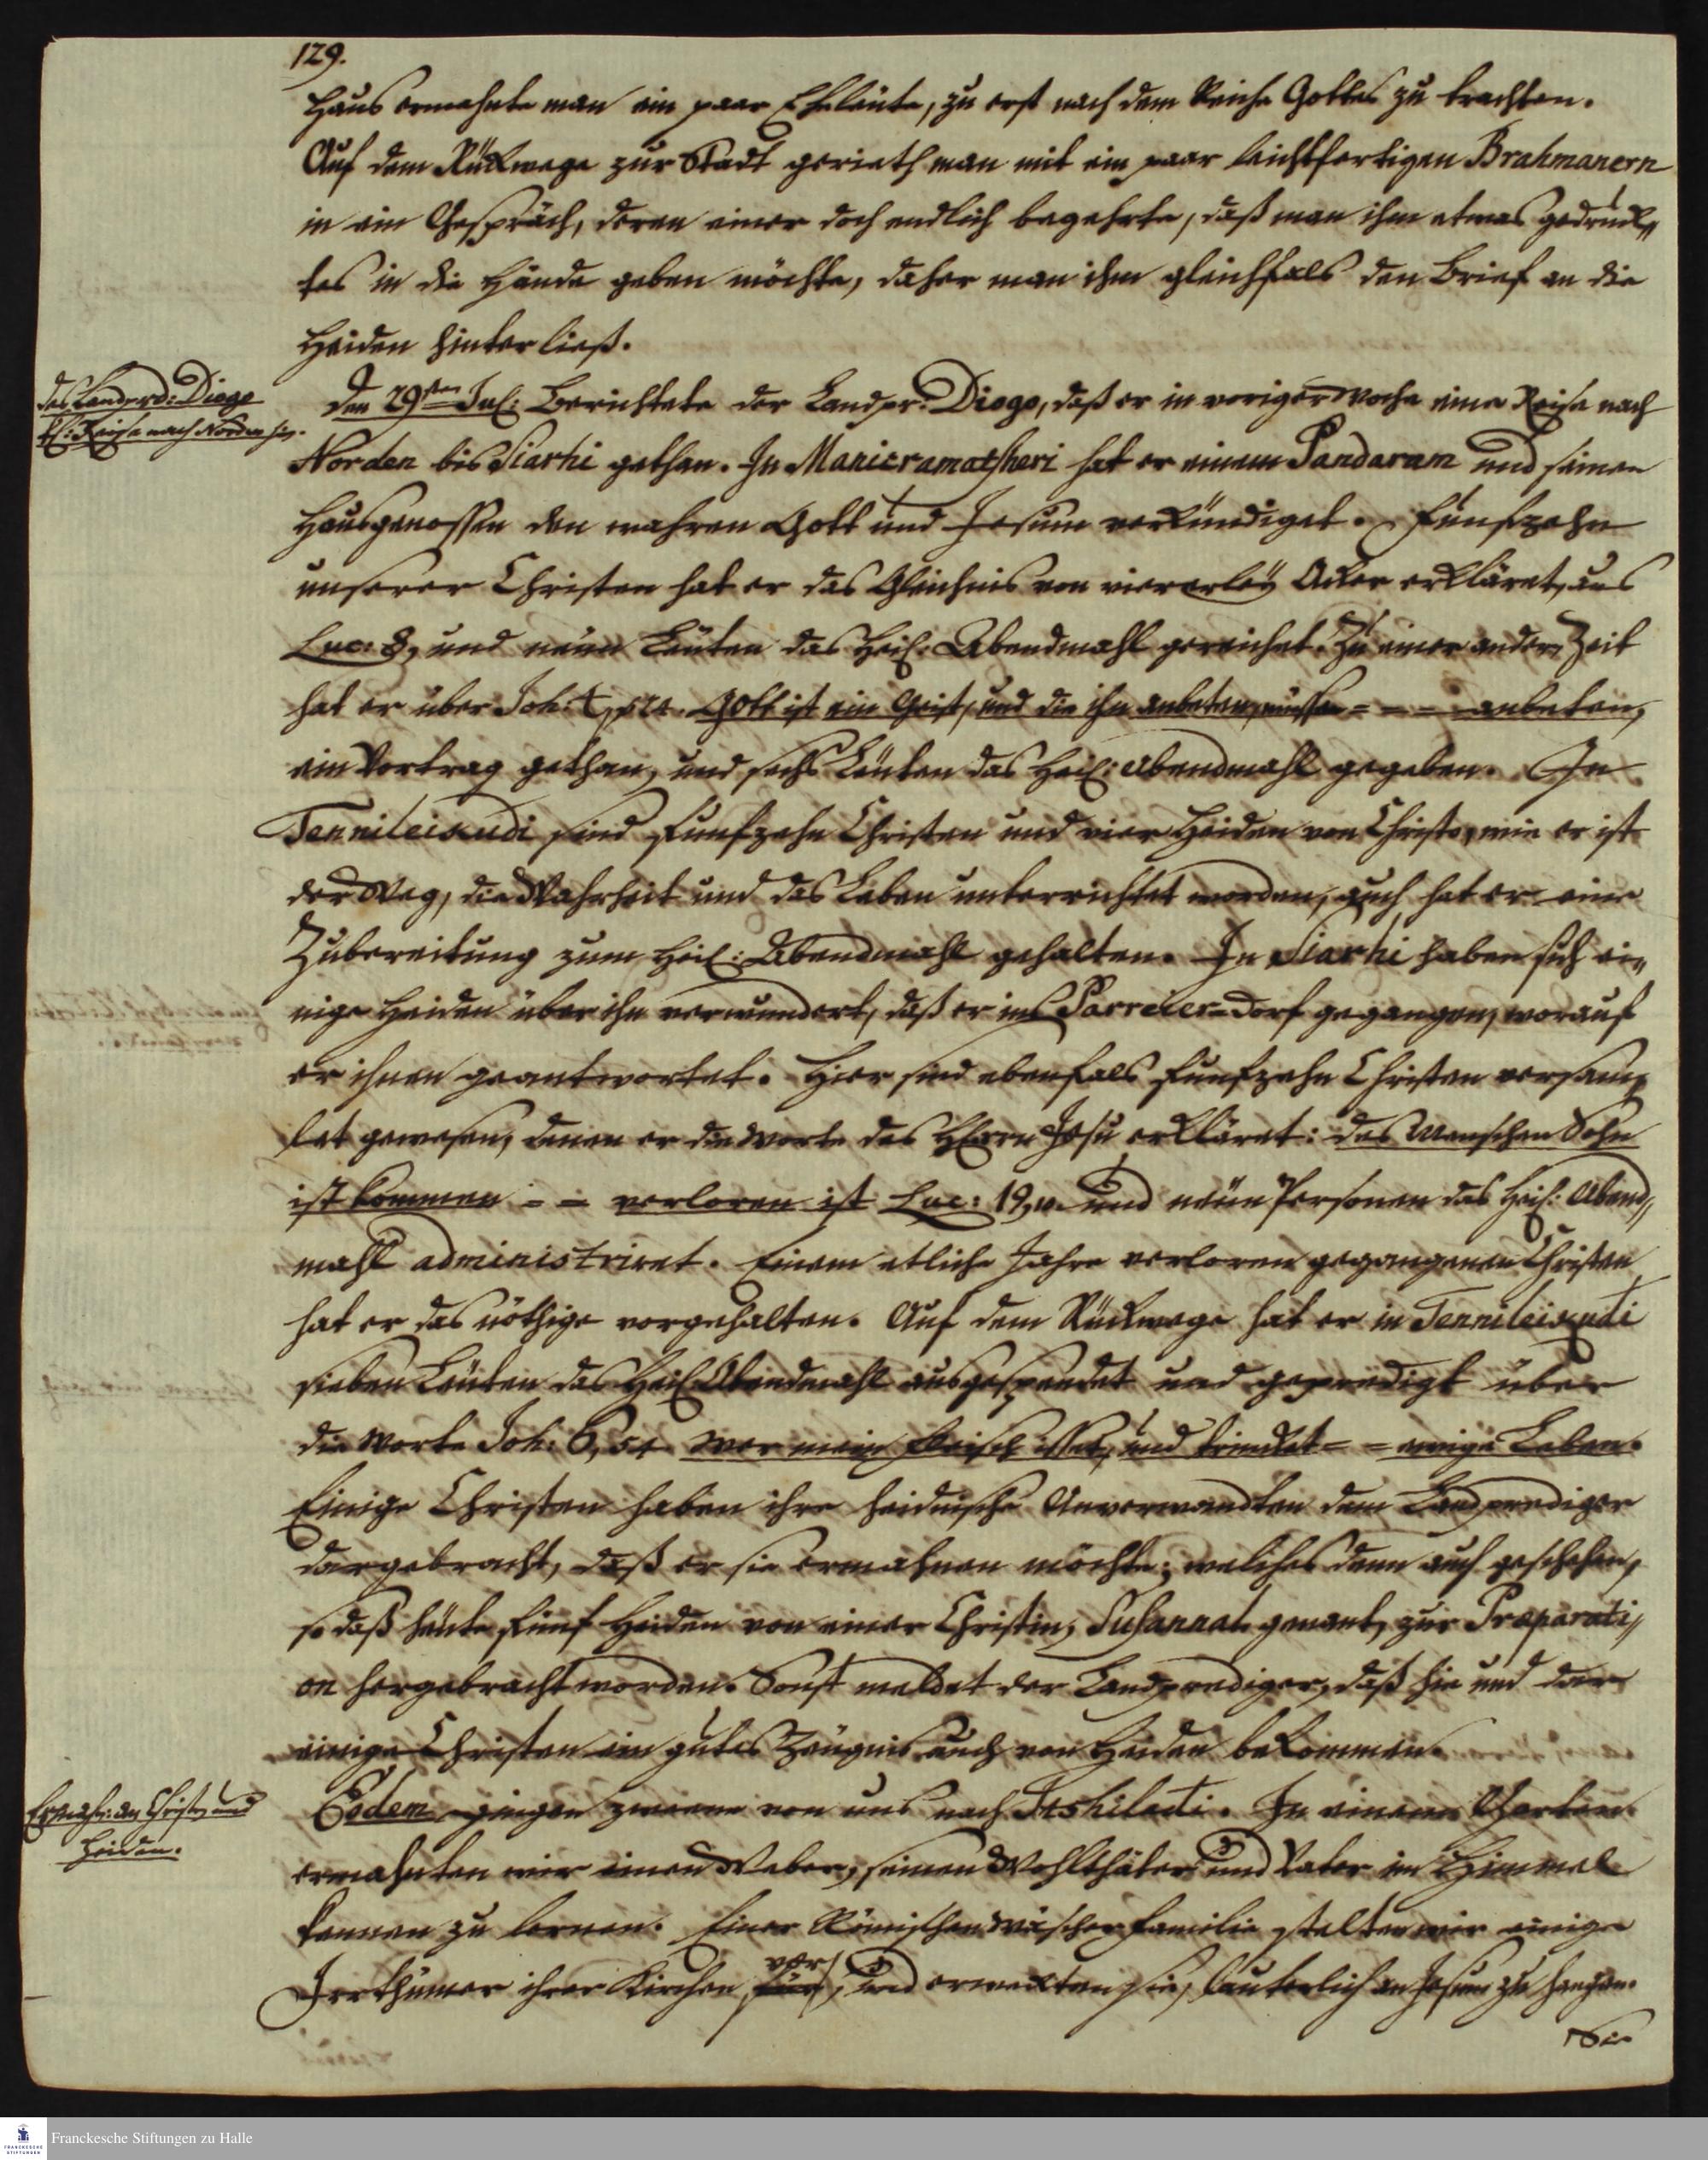 129.
Haus ermahnte man ein paar Eheleute, zu erst nach dem Reiche Gottes zu trachten.
Auf dem Rückwege zur Stadt gerieth man mit ein paar leichtfertigen Brahmanern
in ein Gespräch, deren einer doch endlich begehrte, daß man ihm etwas gedruck„
tes in die Hände geben möchte, daher man ihm gleichfals den Brief an die
Heiden hinterließ.
des Landpred: Diogo
Reise nach Norden hin.
Den 29sten Jul: Berichtete der Landpr: Diogo, daß er in voriger Woche eine Reise nach
Norden bis Siarhi gethan. In Manicramatsheri hat er einem Pandaram und seinen
Hausgenossen den wahren Gott und Jesum verkündiget. Fünfzehn
unserer Christen hat er das Gleichnis von viererley Acker erkläret, aus
Luc: 8, und neun Leuten das Heil: Abendmahl gereichet. Zu einer andern Zeit
hat er über Joh: 4, 24. Gott ist ein Geist, und die ihn anbeten, müssen = — = anbeten,
ein Vortrag gethan, und sechs Leuten das Heil: Abendmahl gegeben. In
Tennileicudi sind funfzehn Christen und vier Heiden von Christo, wie er ist
der Weg, die Wahrheit und das Leben unterrichtet worden, auch hat er eine
Zubereitung zum Heil: Abendmahl gehalten. In Siarhi haben sich ei„
nige Heiden über ihn verwundert, daß er ins Parreier-Dorf gegangen, worauf
er ihnen geantwortet. Hier sind ebenfals funfzehn Christen versam„
let gewesen, denen er die Worte des HErrn Jesu erkläret: des Menschen Sohn
ist kommen = = verloren ist Luc: 19, 10. und neün Personen das Heil: Abend„
mahl administriret. Einem etliche Jahre verloren gegangenen Christen
hat er das nöthige vorgehalten. Auf dem Rückwege hat er in Tennileicudi
sieben Leuten das Heil: Abendmahl ausgespendet und geprediget über
die Worte Joh: 6, 54. Wer mein Fleisch isset, und trincket = = ewige Leben.
Einige Christen haben ihre heidnische Anverwandten dem Landprediger
dargebracht, daß er sie ermahnen möchte; welches denn auch geschehen,
so daß heute fünf Heiden von einer Christin, Susannal genant, zur Præparati„
on hergebracht worden. Sonst meldet der Landprediger, daß hie und dar
einige Christen ein gutes Zeugnis auch von Heiden bekommen.
Ermahn: an Christen und
Heiden.
Eodem gingen zweene von uns nach Tishiladi. In einem Garten
ermahnten wir einen Weber, seinen Wohlthäter und Vater im Himmel
kennen zu lernen. Einer Römischen Wäscher Familie stelten wir einige
Irrthümer ihrer Kirchen für vor, und erweckten sie, lauterlich an Jesum zu hangen.